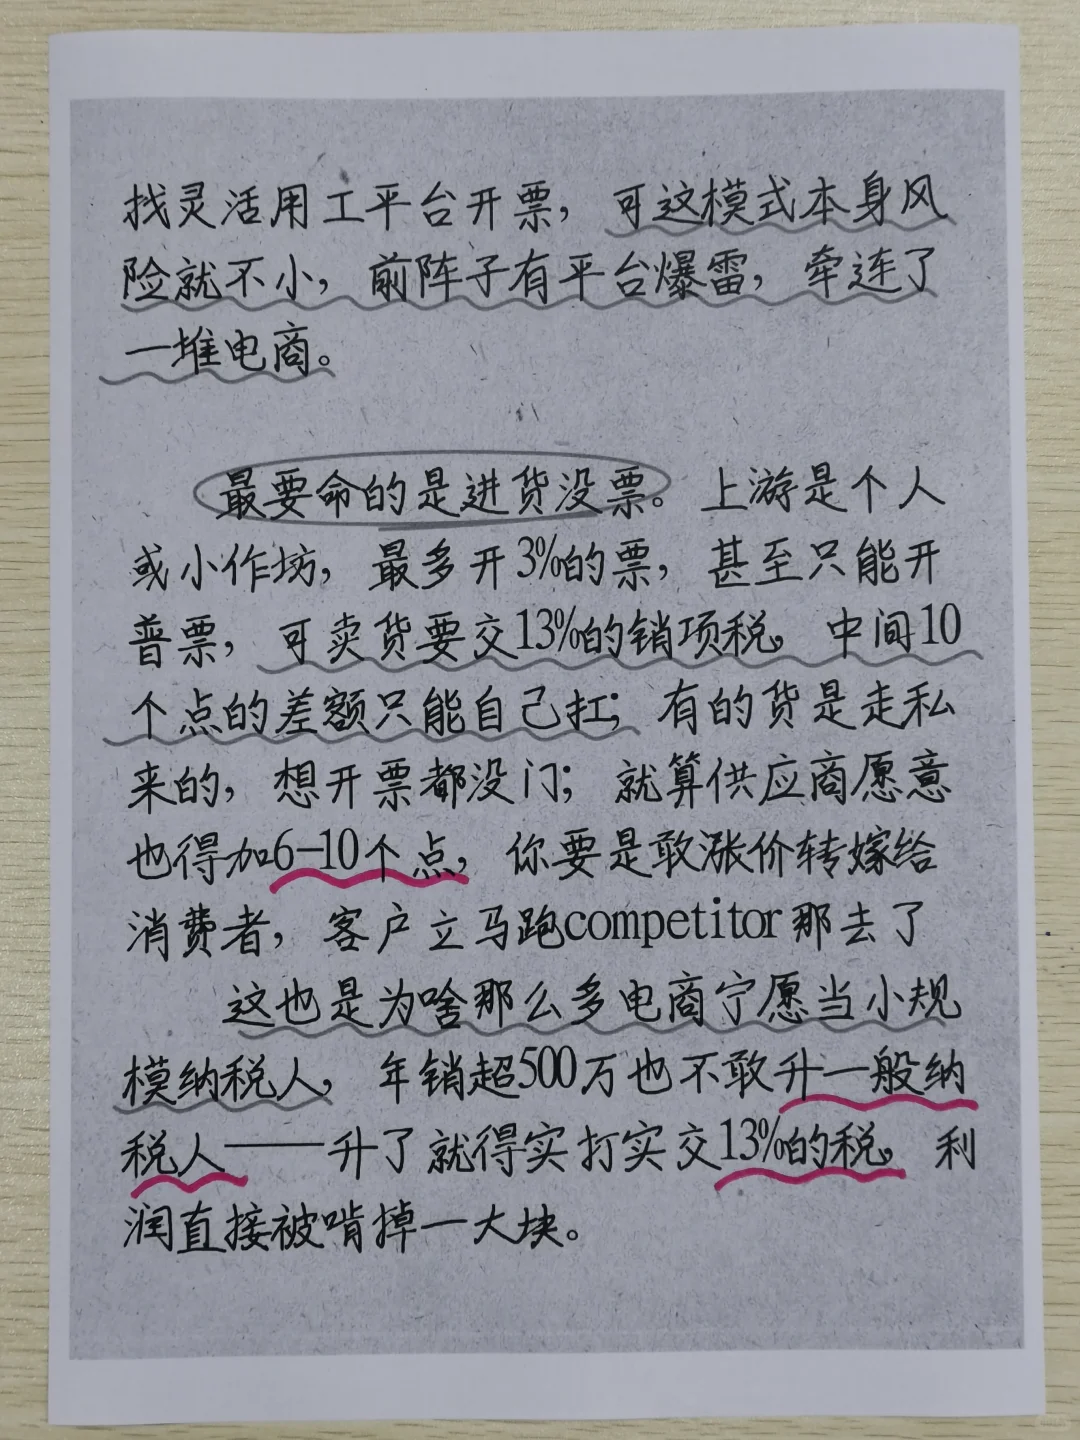 找灵活用工平台开票，可这模式本身风
险就不小，前阵子有平台爆雷，牵连了
一堆电商。
最要命的是进货没票。上游是个人
或小作坊，最多开3%的票，甚至只能开
普票，可卖货要交13%的销项税。中间10
个点的差额只能自己扛；有的货是走私
来的，想开票都没门；就算供应商愿意
也得加6-10个点，你要是敢涨价转嫁给
消费者，客户立马跑competitor那去了
这也是为啥那么多电商宁愿当小规
模纳税人，年销超500万也不敢升一般纳
税人——升了就得实打实交13%的税，利
润直接被啃掉一大块。